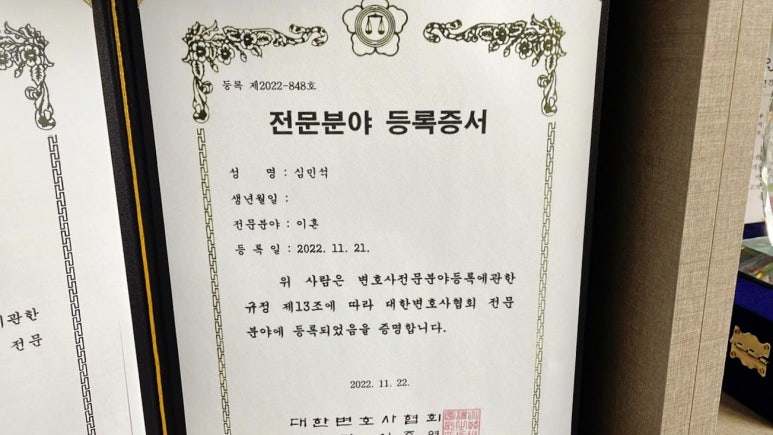 등록 제2022-848호
전문분야 등록증서
성 명 : 심민석
생년월일 :
전문분야 : 이혼
등 록 일 : 2022. 11. 21.
위 사람은 변호사전문분야등록에관한
규정 제13조에 따라 대한변호사협회 전문
분야에 등록되었음을 증명합니다.
2022. 11. 22.
대한변호사협회
관한
전문